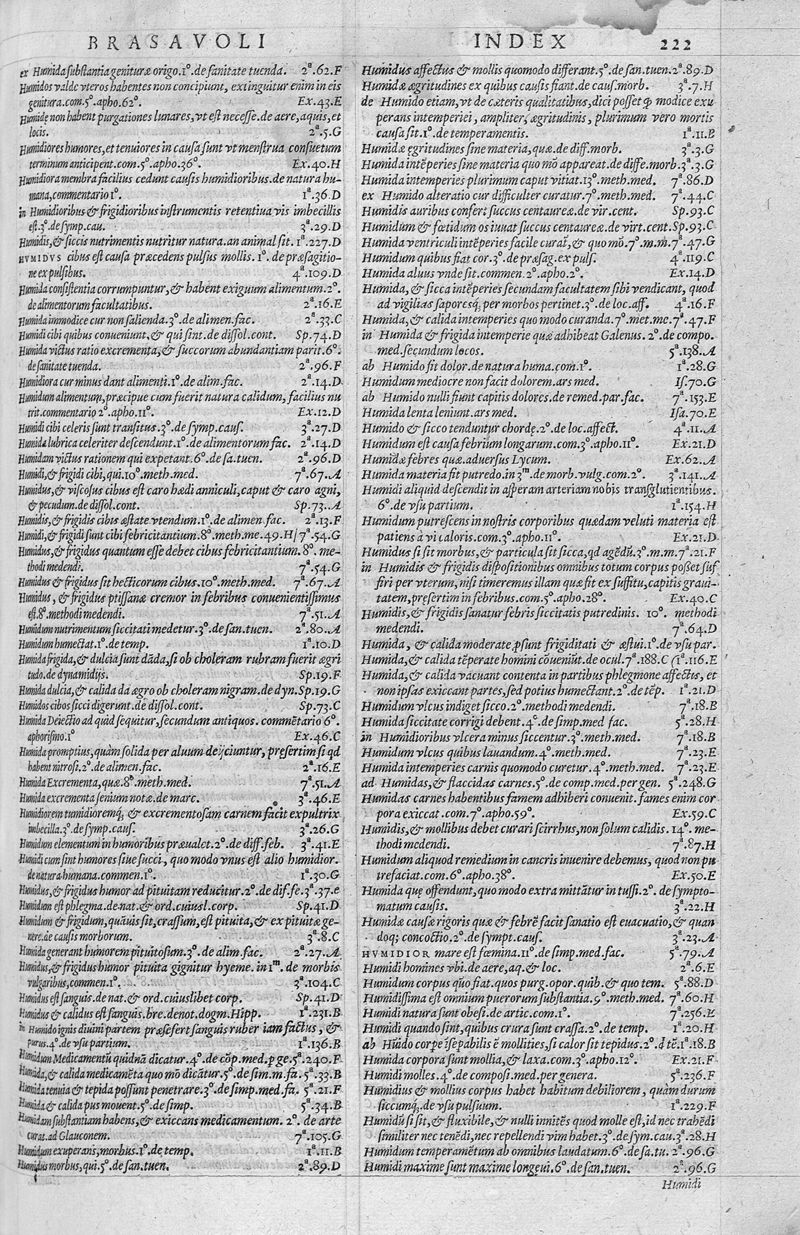 BRASAVOLI INDEX 222
ex Humida substantia genituræ origo.1°.de sanitate tuenda. 2ª.62.F
Humidos valde vteros habentes non concipiunt, extinguitur enim in eis
genitura.com.5°.apho.62°. Ex.43.E
Humidę non habent purgationes lunares, vt est necesse.de aere, aquis, et
locis. 2ª.5.G
Humidiores humores, et tenuiores in causa sunt vt menstrua consuetum
terminum anticipent.com.5°.apho.36°. Ex.40.H
Humidiora membra facilius cedunt causis humidioribus.de natura hu-
mana, commentario 1°. 1ª.36.D
in Humidioribus & frigidioribus instrumentis retentiua vis imbecillis
est.3°.de symp.cau. 3ª.29.D
Humidis, & siccis nutrimentis nutritur natura.an animal sit. 1ª.227.D
HVMIDVS cibus est causa præcedens pulsus mollis. 1°. de præsagitio-
ne ex pulsibus. 4ª.109.D
Humida consistentia corrumpuntur, & habent exiguum alimentum.2°.
de alimentorum facultatibus. 2ª.16.E
Humida immodice cur non salienda.3°.de alimen.fac. 2ª.33.C
Humidi cibi quibus conueniunt, & qui sint.de dissol.cont. Sp.74.D
Humida victus ratio excrementa, & succorum abundantiam parit.6°.
de sanitate tuenda. 2ª.96.F
Humidiora cur minus dant alimenti.1°.de alim.fac. 2ª.14.D
Humidum alimentum, præcipue cum fuerit natura calidum, facilius nu
trit.commentario 2°.apho.11°. Ex.12.D
Humidi cibi celeris sunt transitus.3°.de symp.caus. 3ª.27.D
Humida lubrica celeriter descendunt.1°.de alimentorum fac. 2ª.14.D
Humidam victus rationem qui expetant.6°.de sa.tuen. 2ª.96.D
Humidi, & frigidi cibi, qui.10°.meth.med. 7ª.67.A
Humidus, & viscosus cibus est caro hædi anniculi, caput & caro agni,
& pecudum.de dissol.cont. Sp.73.A
Humidis, & frigidis cibus æstate vtendum.1°.de alimen fac. 2ª.13.F
Humidi, & frigidi sunt cibi febricitantium.8°.meth.me.49.H/7ª.54.G
Humidus, & frigidus quantum esse debet cibus febricitantium.8°. me-
thodi medendi. 7ª.54.G
Humidus & frigidus sit hecticorum cibus.10°.meth.med. 7ª.67.A
Humidus, & frigidus ptissanæ cremor in febribus conuenientissimus
est.8°.methodi medendi. 7ª.51.A
Humidum nutrimentum siccitati medetur.3°.de san.tuen. 2ª.80.A
Humidum humectat.1°.de temp. 1ª.10.D
Humida frigida, & dulcia sunt dāda, si ob choleram rubram fuerit ægri
tudo.de dynamidijs. Sp.19.F
Humida dulcia, & calida da ægro ob choleram nigram.de dyn.Sp.19.G
Humidos cibos sicci digerunt.de dissol.cont. Sp.73.C
Humida Deiectio ad quid sequitur, secundum antiquos. commētario 6°.
aphorismo.1° Ex.46.C
Humida promptius, quàm solida per aluum deijciuntur, presertim si qd
habent nitrosi.2°.de alimen.fac. 2ª.16.E
Humida Excrementa, quæ.8°.meth.med. 7ª.51.A
Humida excrementa senium notæ.de marc. 3ª.46.E
Humidiorem tumidioremq́;, & excrementosam carnem facit expultrix
imbecilla.3°.de symp.caus. 3ª.26.G
Humidum elementum in humoribus præualet.2°.de diff.feb. 3ª.41.E
Humidi cum sint humores siue succi, quo modo vnus est alio humidior.
de natura humana.commen.1°. 1ª.30.G
Humidus, & frigidus humor ad pituitam reducitur.2°.de dif.fe.3ª.37.e
Humidum est phlegma.de nat.& ord.cuiusl.corp. Sp.41.D
Humidum & frigidum, quāuis sit, crassum, est pituita, & ex pituitæ ge-
nere.de causis morborum. 3ª.8.C
Humida generant humorem pituitosum.3°.de alim.fac. 2ª.27.A
Humidus, & frigidus humor pituita gignitur hyeme.in 1ᵐ.de morbis
vulgaribus, commen.1°. 3ª.104.C
Humidus est sanguis.de nat.& ord.cuiuslibet corp. Sp.41.D
Humidus & calidus est sanguis.bre.denot.dogm.Hipp. 1ª.231.B
in Humido ignis diuini partem præsefert sanguis ruber iam factus, &
purus.4°.de vsu partium. 1ª.136.B
Humidum Medicamentū quidnā dicatur.4°.de cōp.med.p ge.5ª.240.F
Humida, & calida medicamēta quo mō dicātur.5°.de sim.m.fa.5ª.33.B
Humida tenuia & tepida possunt penetrare.3°.de simp.med.fa. 5ª.21.F
Humida & calida pus mouent.5°.de simp. 5ª.34.B
Humidam substantiam habens, & exiccans medicamentum. 2°. de arte
curat.ad Glauconem. 7ª.105.G
Humidum exuperans, morbus.1°.de temp. 1ª.11.B
Humidus morbus, qui.5°.de san.tuen. 2ª.89.D
Humidus affectus & mollis quomodo differant.5°.de san.tuen.2ª.89.D
Humidæ ægritudines ex quibus causis fiant.de cau.morb. 3ª.7.H
de Humido etiam, vt de cæteris qualitatibus, dici posset ꝙ modice exu
perans intemperiei, ampliter, ægritudinis, plurimum vero mortis
causa sit.1°.de temperamentis. 1ª.11.B
Humidæ ęgritudines sine materia, quæ.de diff.morb. 3ª.3.G
Humida intēperies sine materia quo mō appareat.de diffe.morb.3ª.3.G
Humida intemperies plurimum caput vitiat.13°.meth.med. 7ª.86.D
ex Humido alteratio cur difficulter curatur.7°.meth.med. 7ª.44.C
Humidis auribus confert succus centaureæ.de vir.cent. Sp.93.C
Humidum & fœtidum os iuuat succus centaureæ.de virt.cent.Sp.93.C
Humida ventriculi intēperies facile curaf, & quo mō.7°.m.m.7ª.47.G
Humidum quibus fiat cor.3°.de præsag.ex puls. 4ª.119.C
Humida aluus vnde fit.commen.2°.apho.2°. Ex.14.D
Humida, & sicca intēperies secundam facultatem sibi vendicant, quod
ad vigilias saporesq́; per morbos pertinet.3°.de loc.aff. 4ª.16.F
Humida, & calida intemperies quo modo curanda.7°.met.me.7ª.47.F
in Humida & frigida intemperie quæ adhibeat Galenus. 2°.de compo.
med.secundum locos. 5ª.138.A
ab Humido fit dolor.de natura huma.com.1°. 1ª.28.G
Humidum mediocre non facit dolorem.ars med. Is.70.G
ab Humido nulli fiunt capitis dolores.de remed.par.fac. 7ª.153.E
Humida lenta leniunt.ars med. Isa.70.E
Humido & sicco tenduntur chordę.2°.de loc.affect. 4ª.11.A
Humidum est causa febrium longarum.com.3°.apho.11°. Ex.21.D
Humidæ febres quæ.aduersus Lycum. Ex.62.A
Humida materia fit putredo.in 3ᵐ.de morb.vulg.com.2°. 3ª.141.A
Humidi aliquid descendit in asperam arteriam nobis transglutientibus.
6°.de vsu partium. 1ª.154.H
Humidum putrescens in nostris corporibus quædam veluti materia est
patiens à vi caloris.com.3°.apho.11°. Ex.21.D
Humidus si sit morbus, & particula sit sicca, qd agēdū.3°.m.m.7ª.21.F
in Humidis & frigidis dispositionibus omnibus totum corpus posset suf
firi per vterum, nisi timeremus illam quæ fit ex suffitu, capitis graui-
tatem, presertim in febribus.com.5°.apho.28°. Ex.40.C
Humidis, & frigidis sanatur febris siccitatis putredinis. 10°. methodi
medendi. 7ª.64.D
Humida, & calida moderate ꝓsunt frigiditati & æstui.1°.de vsu par.
Humida, & calida tēperate homini cōueniūt.de ocul.7ª.188.C (1ª.116.E
Humida, & calida vacuant contenta in partibus phlegmone affectus, et
non ipsas exiccant partes, sed potius humectant.2°.de tēp. 1ª.21.D
Humidum vlcus indiget sicco.2°.methodi medendi. 7ª.18.B
Humida siccitate corrigi debent.4°.de simp.med fac. 5ª.28.H
in Humidioribus vlcera minus siccentur.3°.meth.med. 7ª.18.B
Humidum vlcus quibus lauandum.4°.meth.med. 7ª.23.E
Humida intemperies carnis quomodo curetur.4°.meth.med. 7ª.23.E
ad Humidas, & flaccidas carnes.5°.de comp.med.per gen. 5ª.248.G
Humidas carnes habentibus famem adhiberi conuenit.fames enim cor
pora exiccat.com.7°.apho.59°. Ex.59.C
Humidis, & mollibus debet curari scirrhus, non solum calidis.14°. me-
thodi medendi. 7ª.87.H
Humidum aliquod remedium in cancris inuenire debemus, quod non pu
trefaciat.com.6°.apho.38°. Ex.50.E
Humida que offendunt, quo modo extra mittātur in tussi.2°. de sympto-
matum causis. 3ª.22.H
Humidæ causæ rigoris quæ & febrē facit sanatio est euacuatio, & quan
doq; concoctio.2°.de sympt.caus. 3ª.23.A
HVMIDIOR mare est fœmina.11°.de simp.med.fac. 5ª.79.A
Humidi homines vbi.de aere, aq.& loc. 2ª.6.E
Humidum corpus quō fiat.quos purg.opor.quib.& quo tem. 5ª.88.D
Humidissima est omnium puerorum substantia.9°.meth.med. 7ª.60.H
Humidi natura sunt obesi.de artic.com.1°. 7ª.256.E
Humidi quando sint, quibus crura sunt crassa.2°.de temp. 1ª.20.H
ab Hūido corpe īsepabilis ē mollities, si calor sit tepidus.2°.d tē.1ª.18.B
Humida corpora sunt mollia, & laxa.com.3°.apho.12°. Ex.21.F
Humidi molles.4°.de composi.med.per genera. 5ª.236.F
Humidius & mollius corpus habet habitum debiliorem, quàm durum
siccumq́;.de vsu pulsuum. 1ª.229.F
Humidū si sit, & fluxibile, & nulli innitēs quod molle est, id nec trahēdi
similiter nec tenēdi, nec repellendi vim habet.3°.de sym.cau.3ª.28.H
Humidum temperamētum ab omnibus laudatum.6°.de sa.tu. 2ª.96.G
Humidi maxime sunt maxime longęui.6°.de san.tuen. 2ª.96.G
Humidi